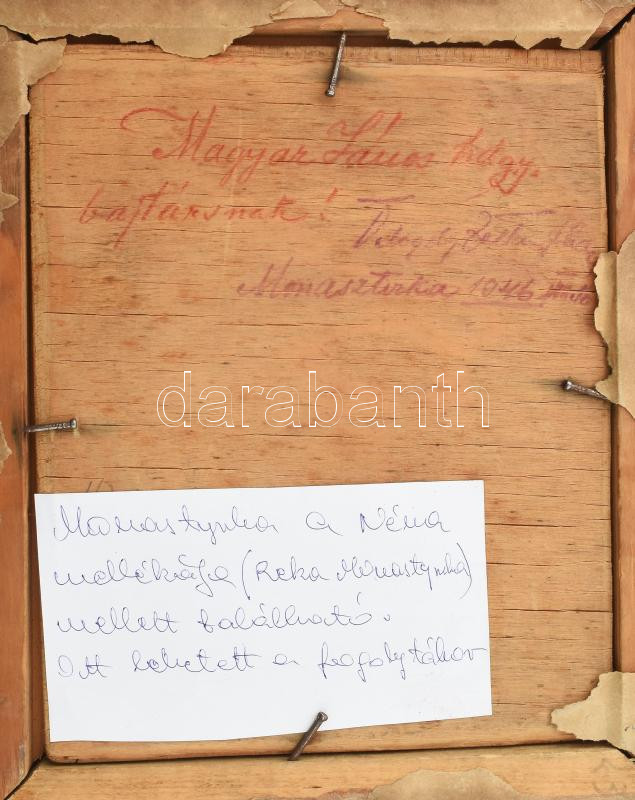 Magyar János hdgy.
bajtársnak!
Monasztirka 1946
darabanth
Monastyrka a Néva
mellékága (Reka Monastyrka)
mellett található.
Itt lehetett a fogolytábor